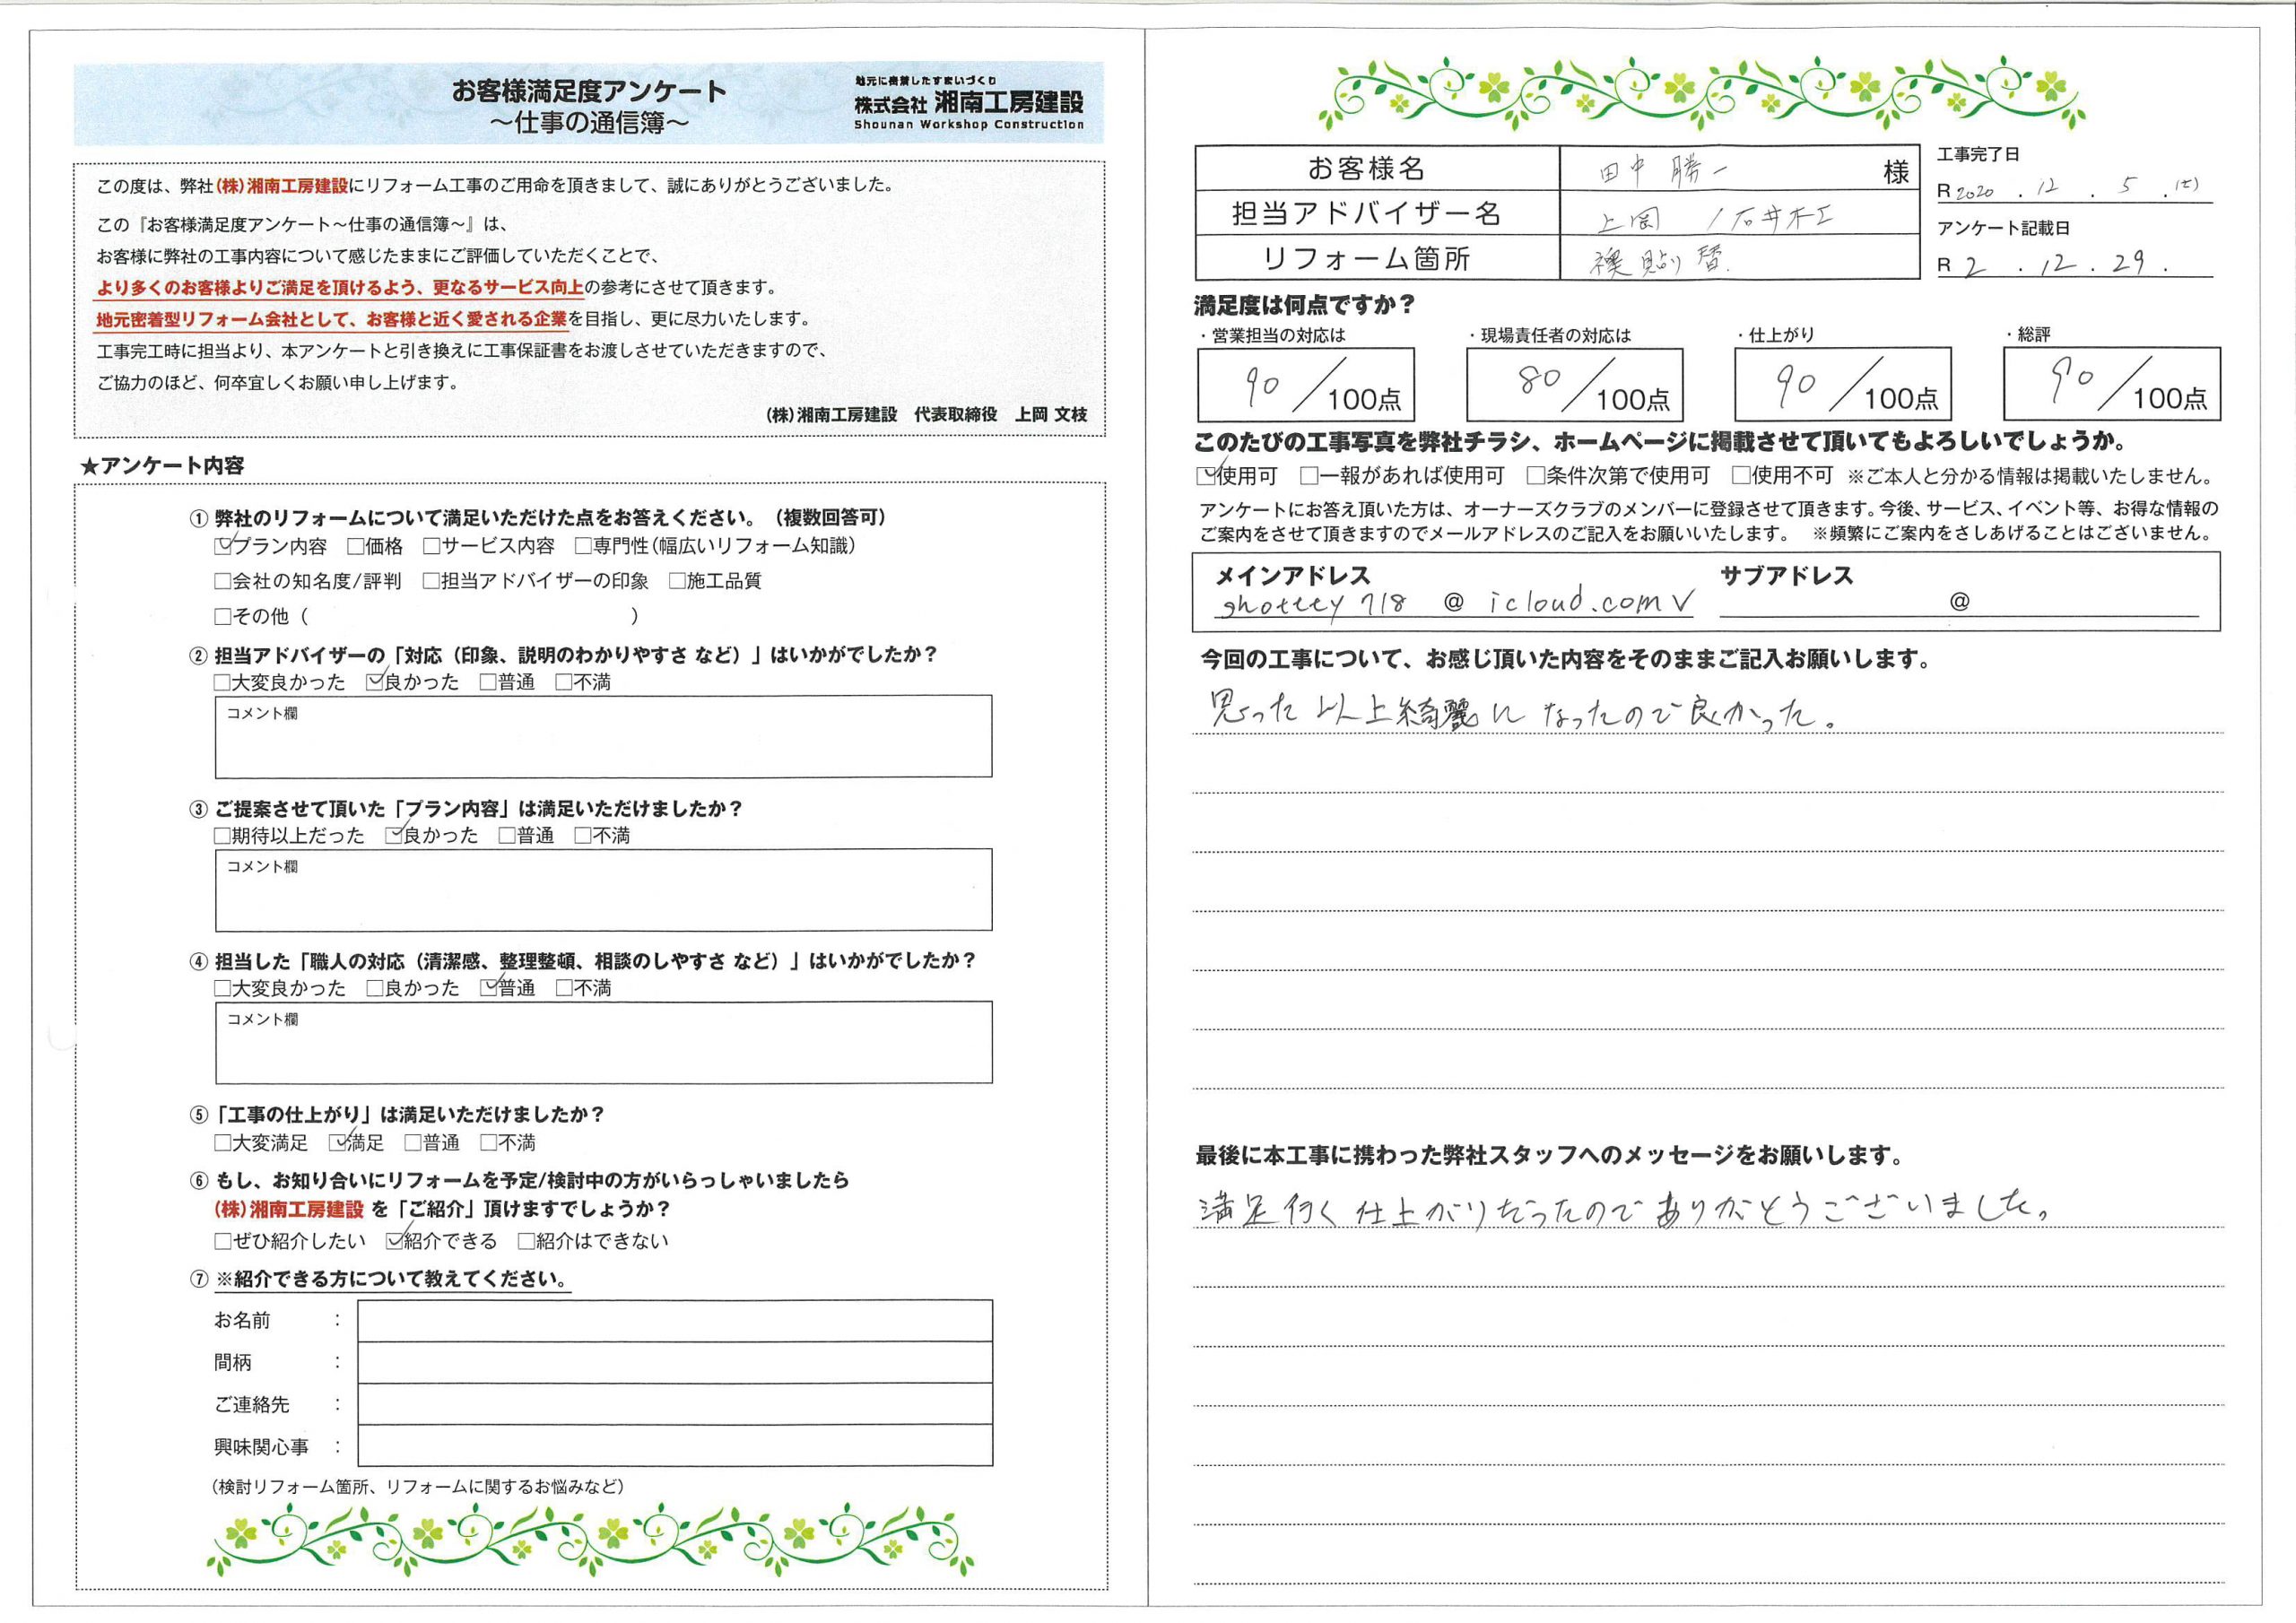 お客様満足度アンケート
～仕事の通信簿～
地元に密着したすまいづくり
株式会社 湘南工房建設
Shounan Workshop Construction
この度は、弊社(株)湘南工房建設にリフォーム工事のご用命を頂きまして、誠にありがとうございました。
この『お客様満足度アンケート～仕事の通信簿～』は、
お客様に弊社の工事内容について感じたままにご評価していただくことで、
より多くのお客様よりご満足を頂けるよう、更なるサービス向上の参考にさせて頂きます。
地元密着型リフォーム会社として、お客様と近く愛される企業を目指し、更に尽力いたします。
工事完工時に担当より、本アンケートと引き換えに工事保証書をお渡しさせていただきますので、
ご協力のほど、何卒宜しくお願い申し上げます。
(株)湘南工房建設 代表取締役 上岡 文枝
★アンケート内容
① 弊社のリフォームについて満足いただけた点をお答えください。(複数回答可)
☑プラン内容 □価格 □サービス内容 □専門性(幅広いリフォーム知識)
□会社の知名度/評判 □担当アドバイザーの印象 □施工品質
□その他 ( )
② 担当アドバイザーの「対応(印象、説明のわかりやすさ など)」はいかがでしたか?
□大変良かった ☑良かった □普通 □不満
コメント欄
③ ご提案させて頂いた「プラン内容」は満足いただけましたか?
□期待以上だった ☑良かった □普通 □不満
コメント欄
④ 担当した「職人の対応(清潔感、整理整頓、相談のしやすさ など)」はいかがでしたか?
□大変良かった □良かった ☑普通 □不満
コメント欄
⑤「工事の仕上がり」は満足いただけましたか?
□大変満足 ☑満足 □普通 □不満
⑥ もし、お知り合いにリフォームを予定/検討中の方がいらっしゃいましたら
(株)湘南工房建設 を「ご紹介」頂けますでしょうか?
□ぜひ紹介したい ☑紹介できる □紹介はできない
⑦ ※紹介できる方について教えてください。
お名前 :
間柄 :
ご連絡先 :
興味関心事 :
(検討リフォーム箇所、リフォームに関するお悩みなど)
お客様名 田中 勝一 様
担当アドバイザー名 上岡 / 石井木工
リフォーム箇所 襖貼り替
工事完了日
R 2020 . 12 . 5 . (土)
アンケート記載日
R 2 . 12 . 29 .
満足度は何点ですか?
・営業担当の対応は ・現場責任者の対応は ・仕上がり ・総評
90/100点 80/100点 90/100点 90/100点
このたびの工事写真を弊社チラシ、ホームページに掲載させて頂いてもよろしいでしょうか。
☑使用可 □一報があれば使用可 □条件次第で使用可 □使用不可 ※ご本人と分かる情報は掲載いたしません。
アンケートにお答え頂いた方は、オーナーズクラブのメンバーに登録させて頂きます。今後、サービス、イベント等、お得な情報の
ご案内をさせて頂きますのでメールアドレスのご記入をお願いいたします。 ※頻繁にご案内をさしあげることはございません。
メインアドレス サブアドレス
718 @ icloud.com @
今回の工事について、お感じ頂いた内容をそのままご記入お願いします。
思った以上綺麗になったので良かった。
最後に本工事に携わった弊社スタッフへのメッセージをお願いします。
満足行く仕上がりだったのでありがとうございました。